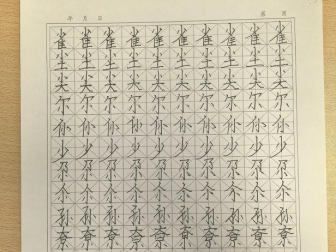 年 月 日 第 页
雀 雀 雀 雀 雀 雀 雀 雀 雀
尘 尘 尘 尘 尘 尘 尘 尘 尘
尖 尖 尖 尖 尖 尖 尖 尖 尖
尔 尔 尔 尔 尔 尔 尔 尔 尔
你 你 你 你 你 你 你 你 你
少 少 少 少 少 少 少 少 少
尕 尕 尕 尕 尕 尕 尕 尕 尕
孙 孙 孙 孙 孙 孙 孙 孙 孙
尞 尞 尞 尞 尞 尞 尞 尞 尞